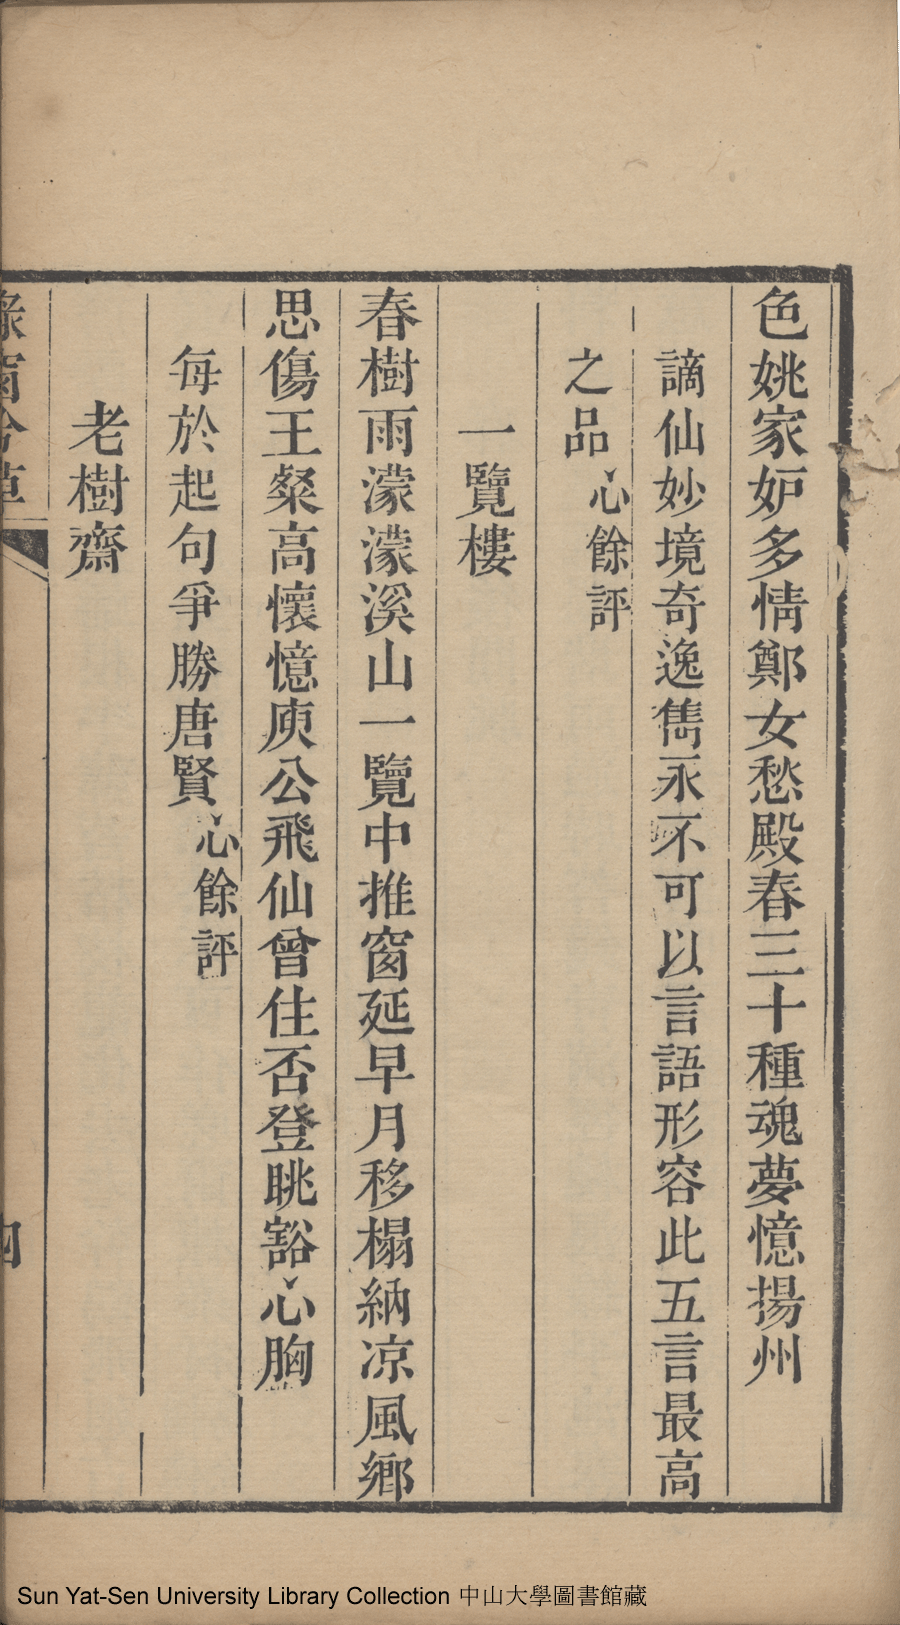 色姚家妒多情鄭女愁殿春三十種魂夢憶揚州
謫仙妙境奇逸雋永不可以言語形容此五言最高
之品心餘評
一覽樓
春樹雨濛濛溪山一覽中推窗延早月移榻納凉風鄉
思傷王粲高懷憶庾公飛仙曾住否登眺豁心胸
每於起句爭勝唐賢心餘評
老樹齋
Sun Yat-Sen University Library Collection 中山大學圖書館藏